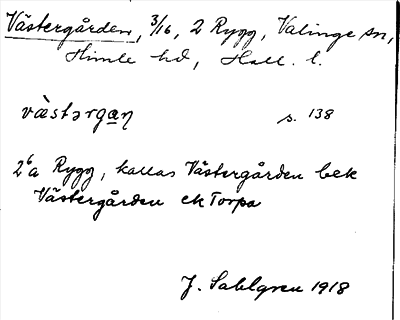 Västergården, 3/16, 2 Rygg, Valinge sn,
Himle hd, Hall. l.
væ̀stərgan̥ s. 138
2⁶a Rygg, kallas Västergården bek
Västergården ek Torpa
J. Sahlgren 1918